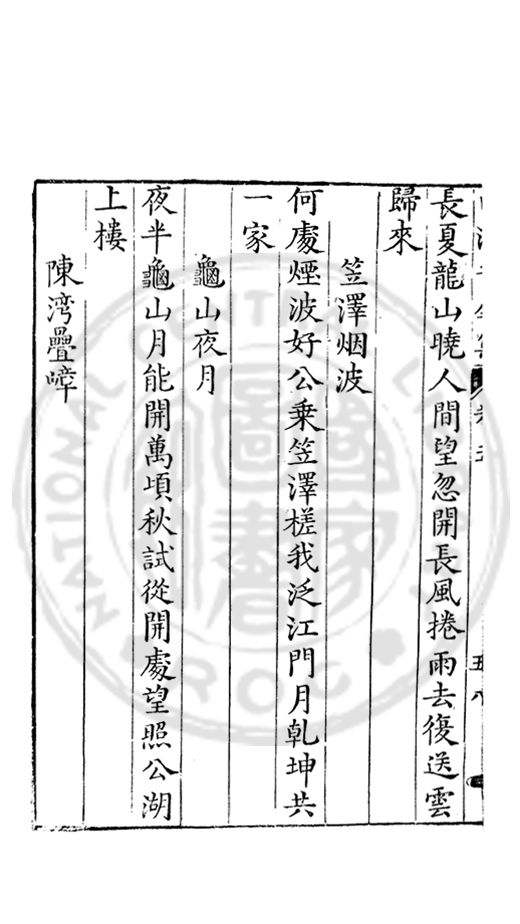 長夏龍山曉人間望忽開長風捲雨去復送雲
歸來
笠澤烟波
何處煙波好公乗笠澤槎我泛江門月乹坤共
一家
龜山夜月
夜半龜山月能開萬頃秋試從開處望照公湖
上樓
陳湾疊嶂